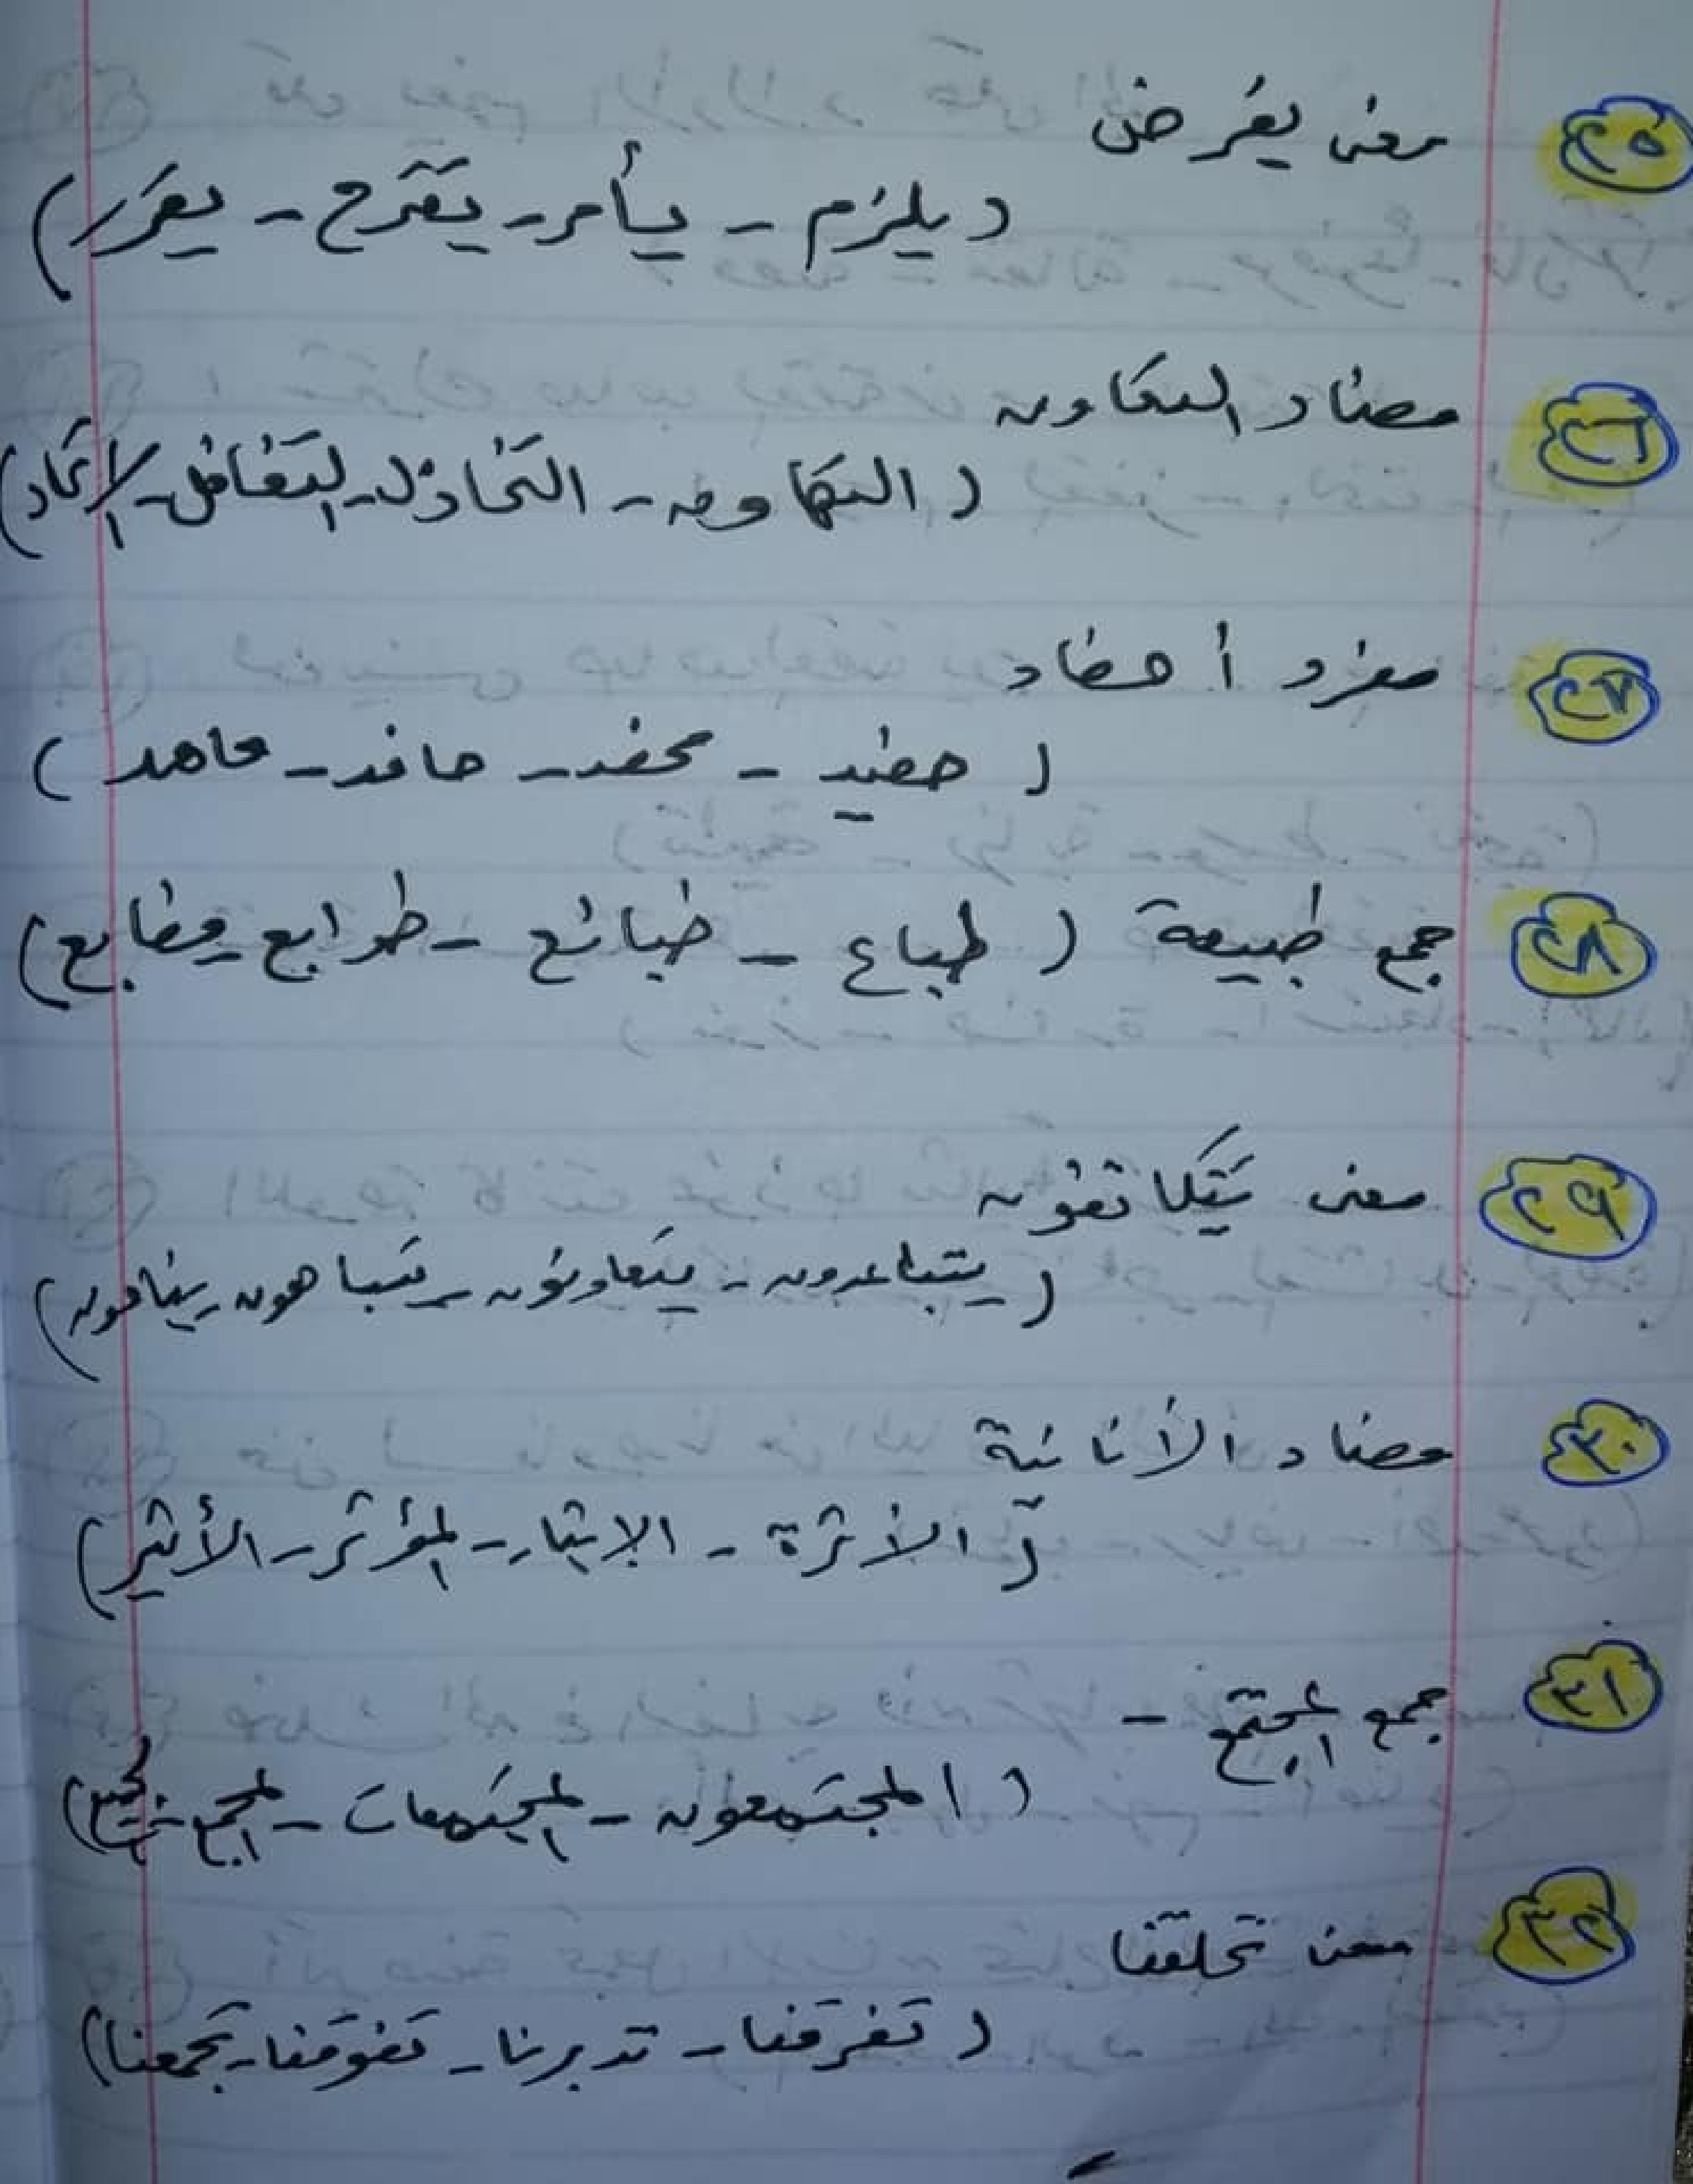 ٢٥ معنى يفرض
( يلزم - يأمر - يقترح - يقرر )
٢٦ مضاد التعاون
( التهاون - التخاذل - التغافل - الاتحاد )
٢٧ مفرد أحفاد
( حفيد - محفد - حافد - حاهد )
٢٨ جمع طبيعة ( طباع - ضبائع - طوابع - مطابع )
٢٩ معنى يتكاتفون
( يتباعدون - يتعاونون - يتباهون -
٣٠ مضاد الأنانية
( الأثرة - الإيثار - المؤثر - الأثير )
٣١ جمع المجتمع -
( المجتمعون - المجتمعات - المجمع -
٣٢ معنى تحلقنا
( تفرقنا - تدبرنا - تفوقنا - تجمعنا )